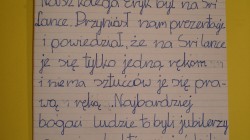 Nasz kolega Eryk był na Sri
Lance. Przyniósł nam prezentacje
i powiedział, że na Sri lance
je się tylko jedną rękom
i niema sztućców je się pra-
wą ręką. „Najbardziej
bogaci ludzie to byli jubilerzy